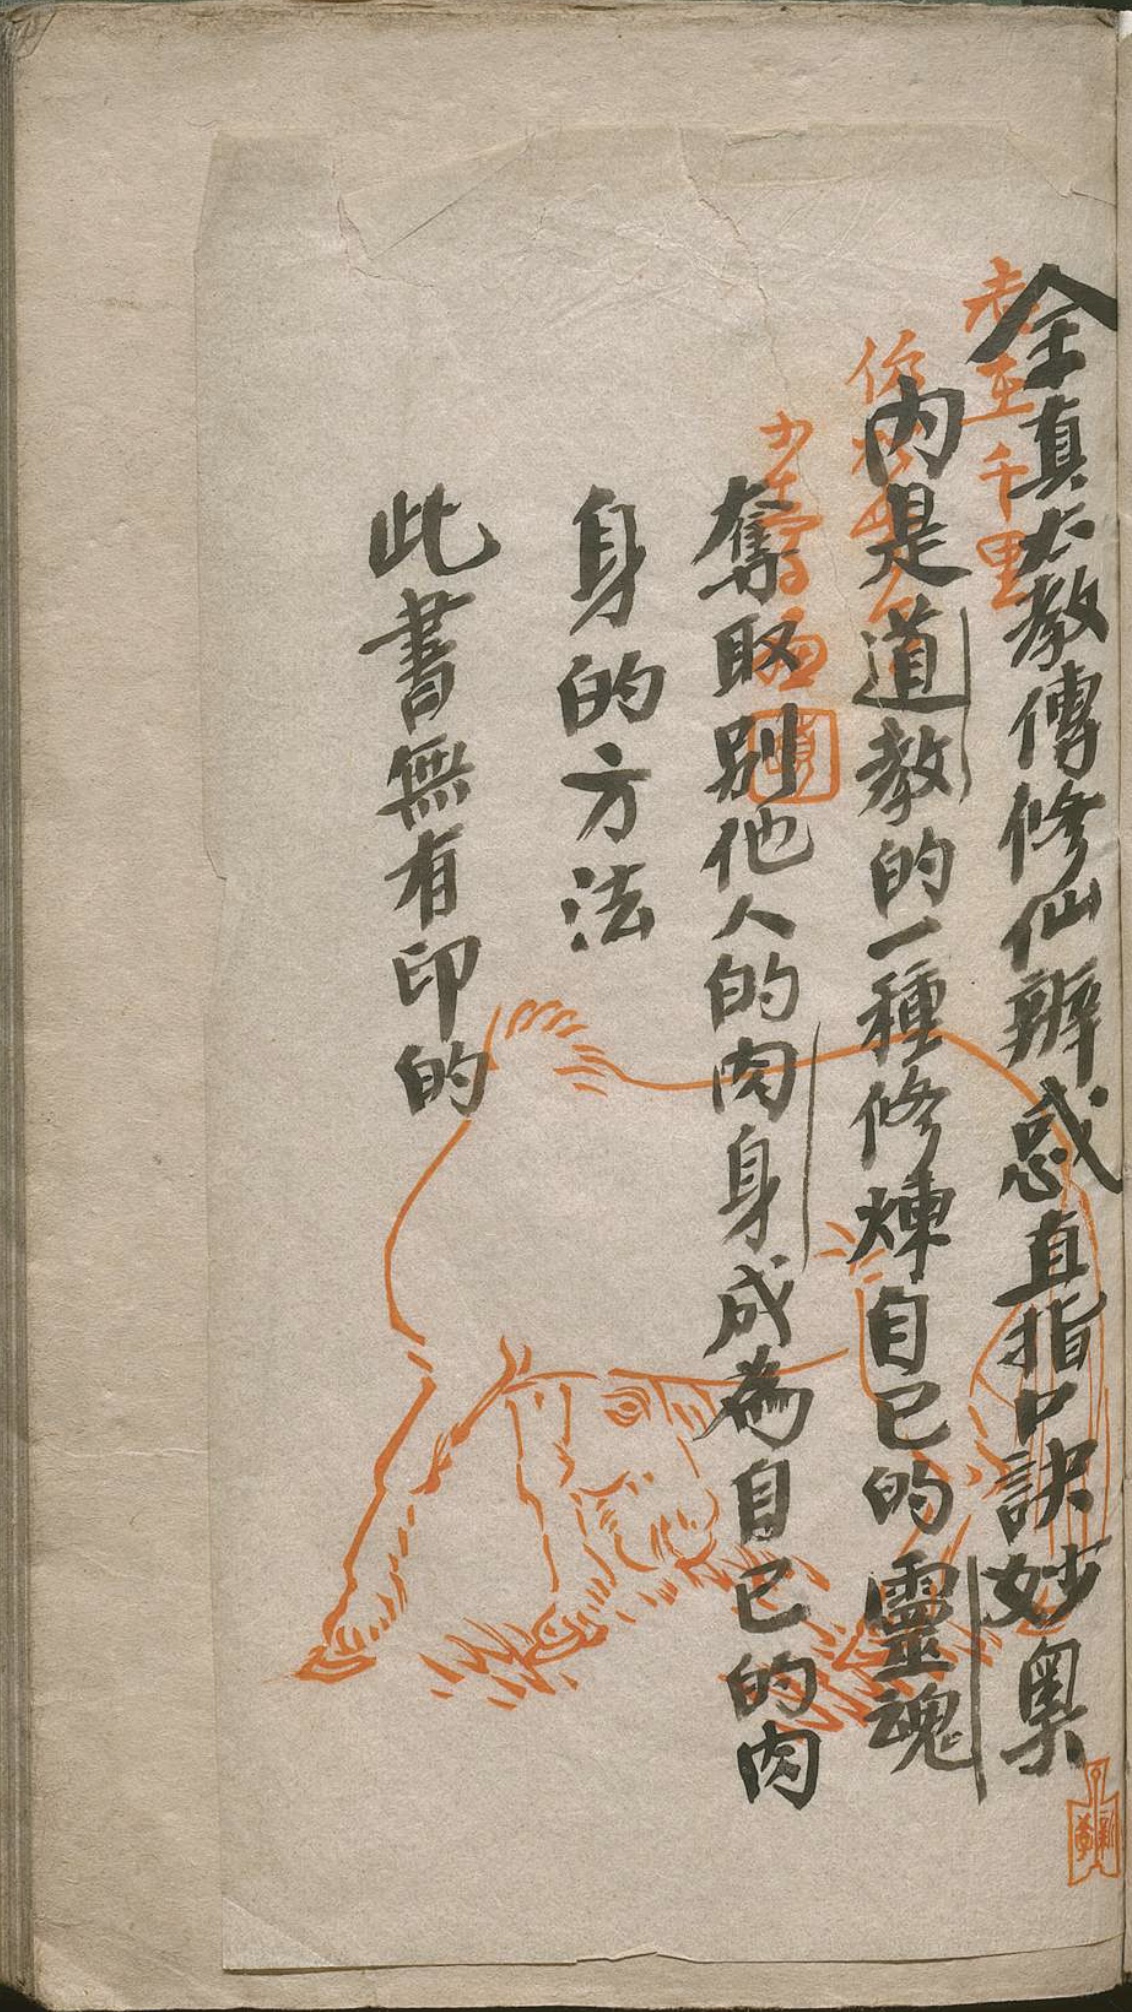 全真大教傳修仙辨惑直指口訣妙奧
內是道教的一種修煉自己的靈魂
奪取别他人的肉身成為自己的肉
身的方法
此書無有印的
志在千里